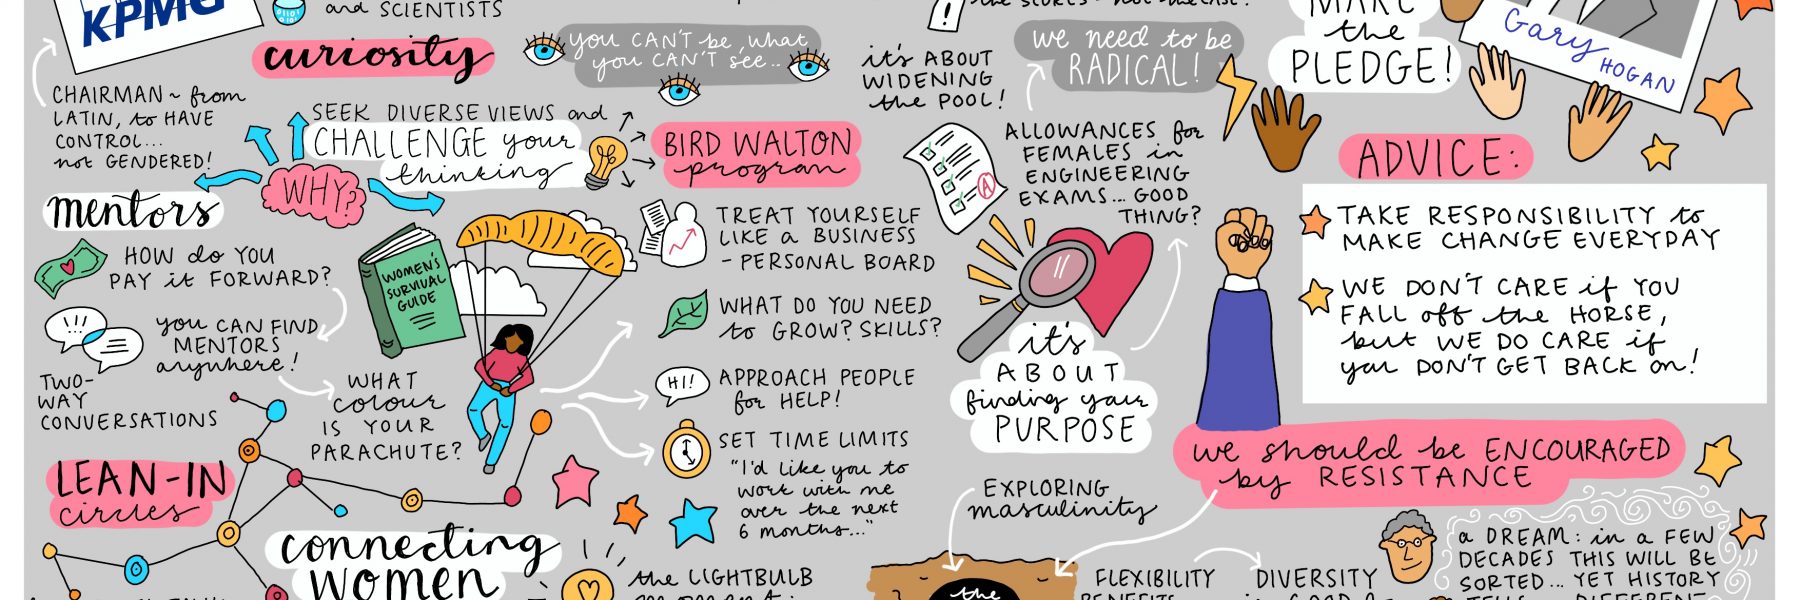 KPMG
and SCIENTISTS
CHAIRMAN ~ from
LATIN, to HAVE
CONTROL...
not GENDERED!
curiosity
you CAN'T be what
you CAN'T see...
SEEK DIVERSE VIEWS and
CHALLENGE your
thinking
WHY?
mentors
HOW do YOU
PAY it FORWARD?
!!!
you CAN FIND
MENTORS
anywhere!
TWO-
WAY
CONVERSATIONS
WOMEN'S
SURVIVAL
GUIDE
WHAT
colour
IS YOUR
PARACHUTE?
LEAN-IN
circles
connecting
WOMEN
BIRD WALTON
program
TREAT YOURSELF
LIKE a BUSINESS
- PERSONAL BOARD
WHAT DO YOU NEED
to GROW? SKILLS?
HI!
APPROACH PEOPLE
for HELP!
SET TIME LIMITS
"I'd like you to
work with me
over the next
6 months..."
the LIGHTBULB
it's ABOUT
WIDENING
the POOL!
!
we need to be
RADICAL!
ALLOWANCES for
FEMALES in
ENGINEERING
EXAMS... GOOD
THING?
A
it's
ABOUT
finding your
PURPOSE
EXPLORING
masculinity
the
FLEXIBILITY
DIVERSITY
MAKE
the
PLEDGE!
Gary HOGAN
ADVICE:
TAKE RESPONSIBILITY to
MAKE CHANGE EVERYDAY
WE DON'T CARE if YOU
FALL off the HORSE,
but WE DO CARE if
you DON'T GET BACK on!
we should be ENCOURAGED
by RESISTANCE
a DREAM: in a FEW
DECADES THIS WILL BE
SORTED... YET HISTORY